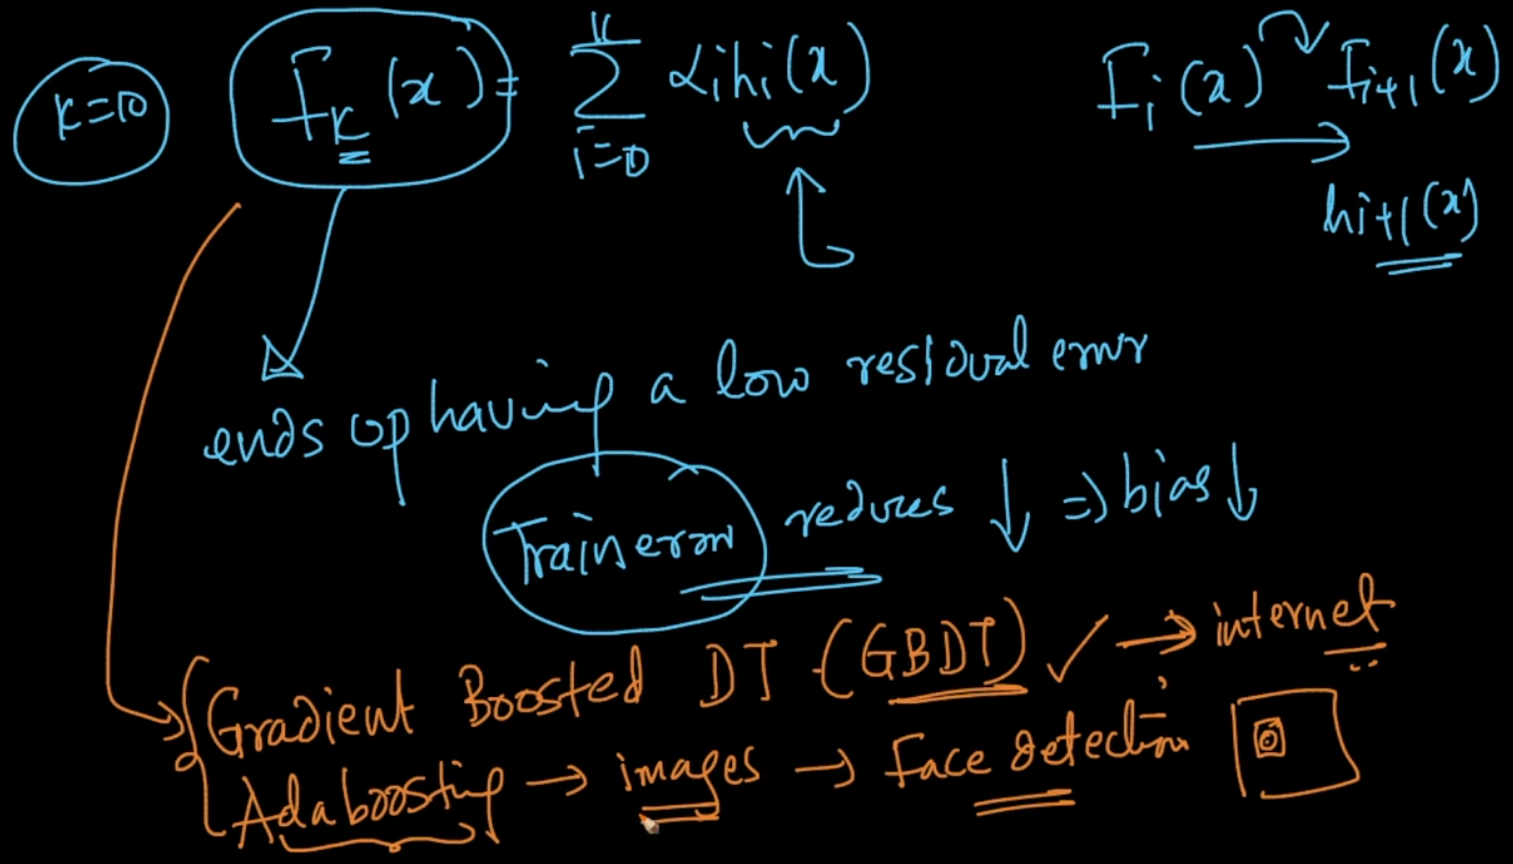 K=10 F_K(x) = K∑i=0 αihi(x) Fi(x) Fi+1(x)
hi+1(x)
ends up having a low residual error
Train error reduces ↓ ⇒ bias ↓
Gradient Boosted DT (GBDT) ✓ → internet
Adaboosting → images → Face detection